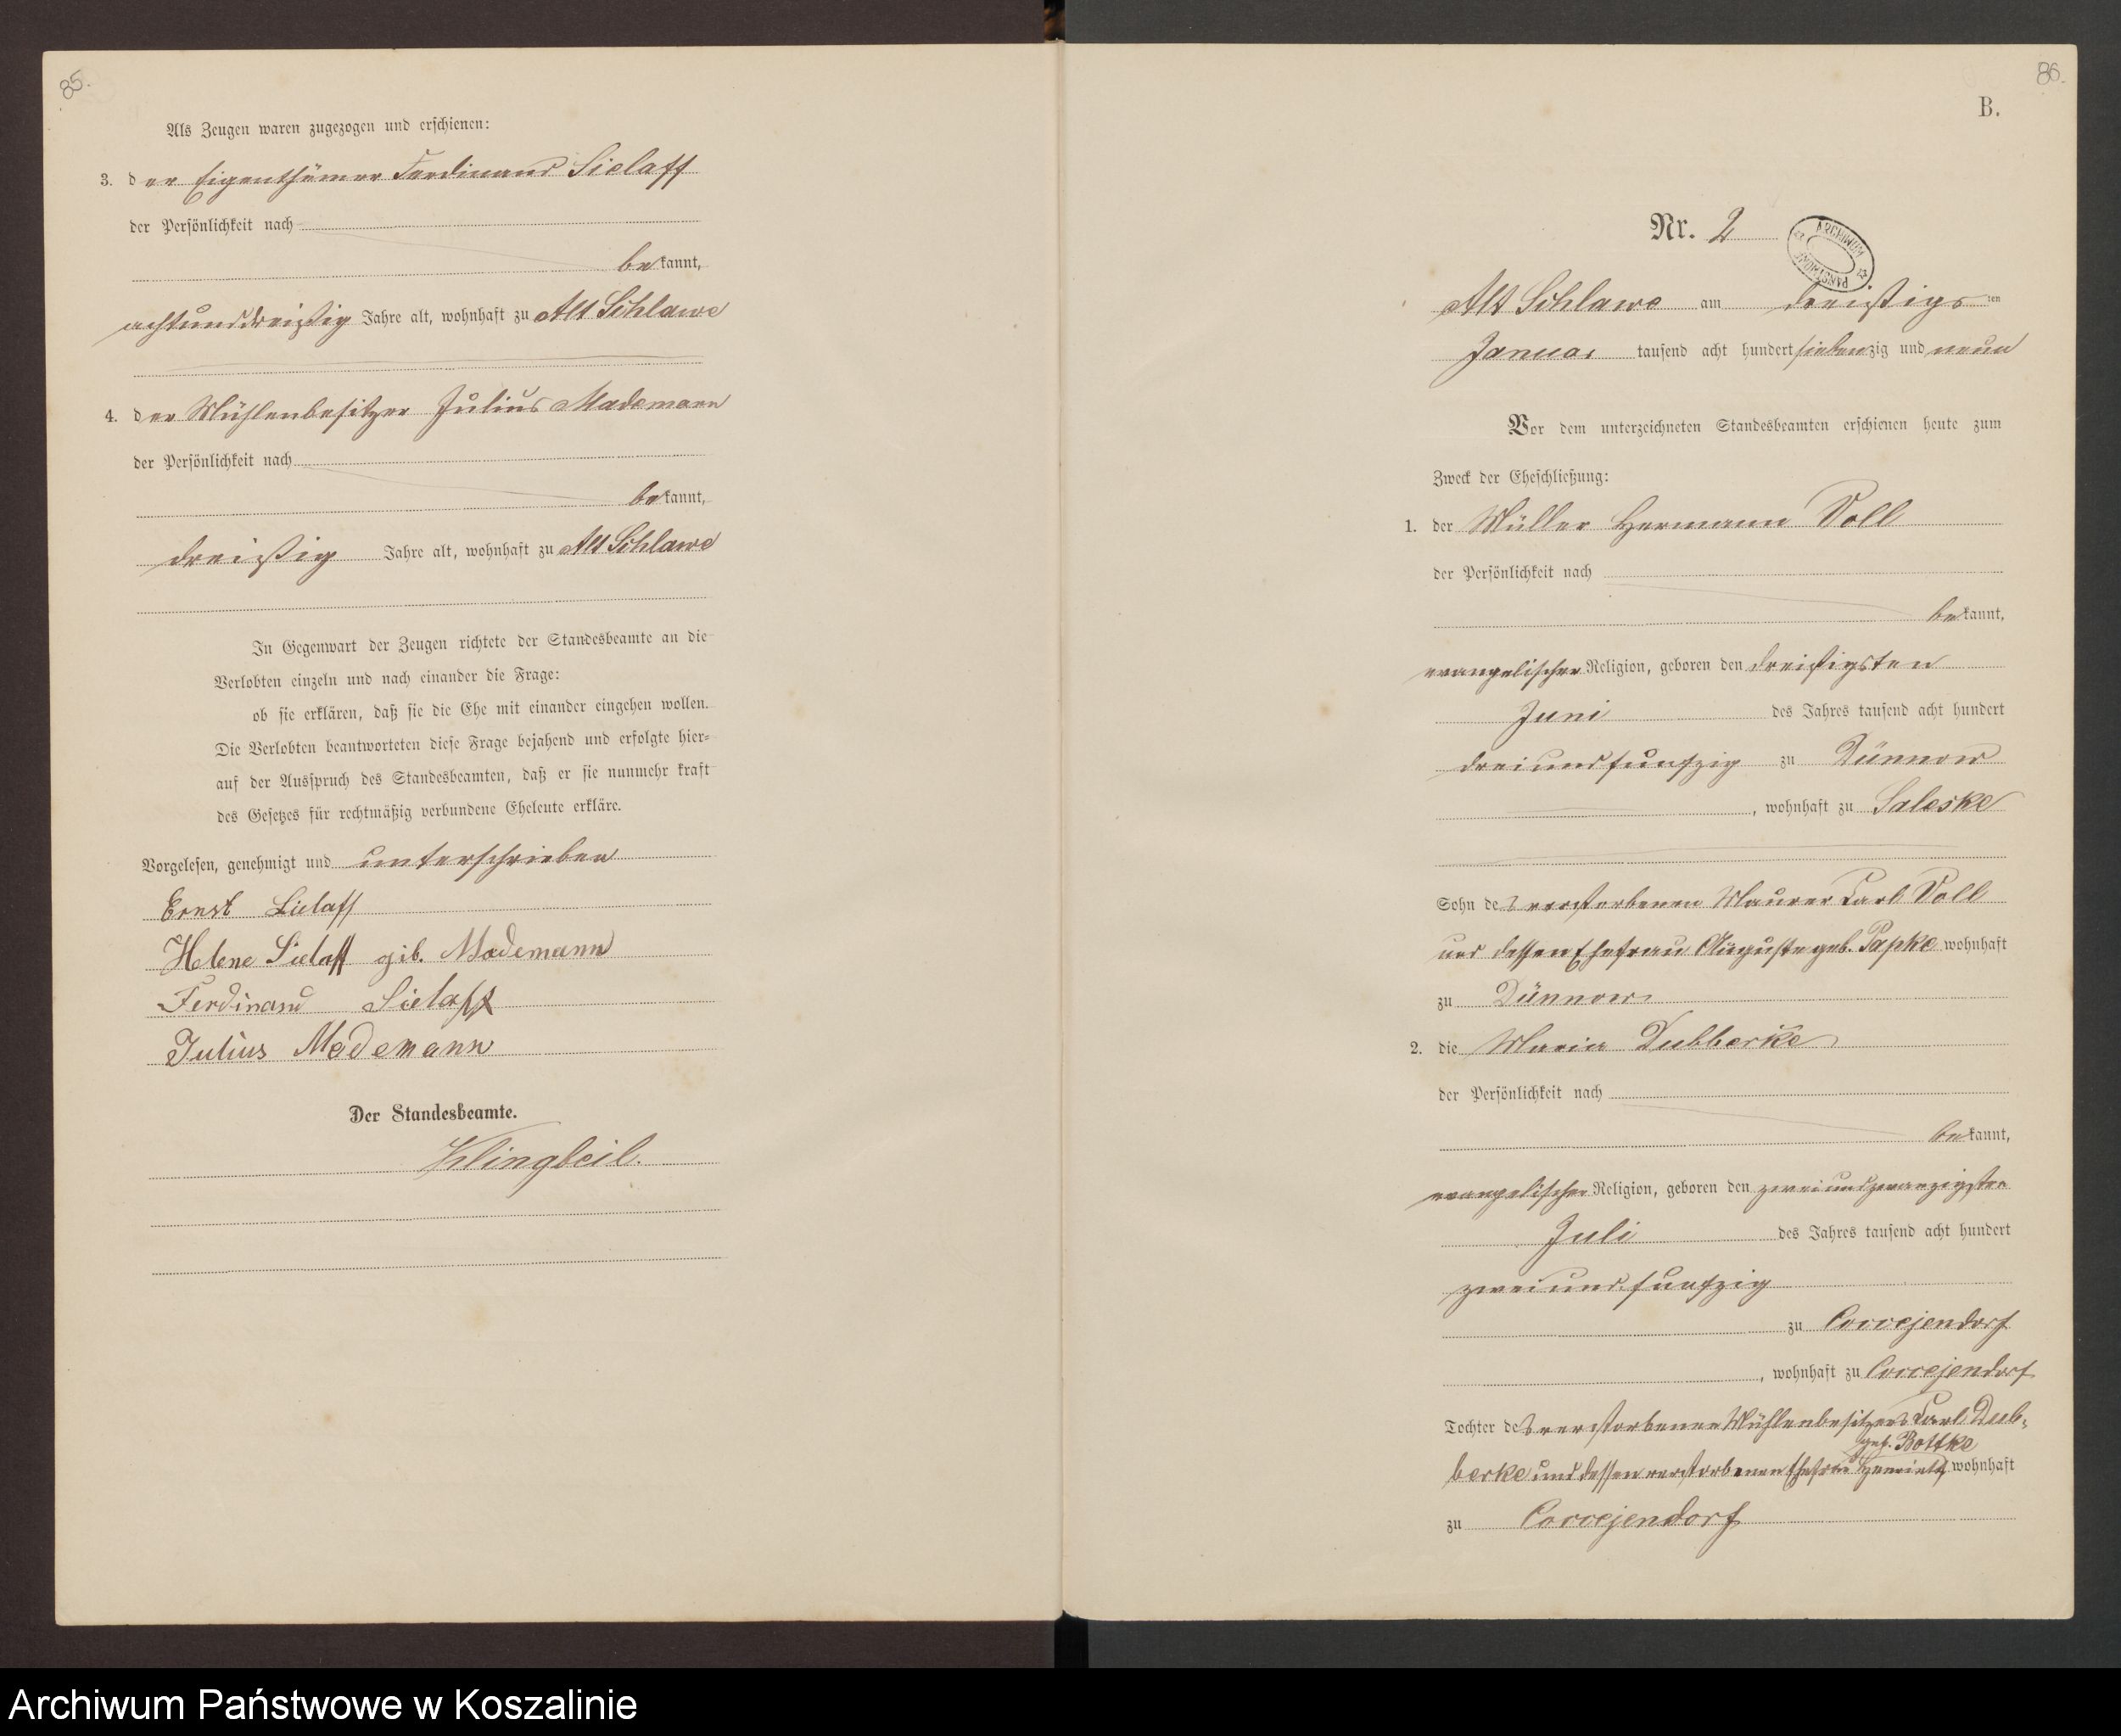 85.
Als Zeugen waren zugezogen und erschienen:
3. der Eigenthümer Ferdinand Sielaff
der Persönlichkeit nach
bekannt,
achtunddreißig Jahre alt, wohnhaft zu Alt Schlawe
4. der Mühlenbesitzer Julius Mademann
der Persönlichkeit nach
bekannt,
dreißig Jahre alt, wohnhaft zu Alt Schlawe
In Gegenwart der Zeugen richtete der Standesbeamte an die
Verlobten einzeln und nach einander die Frage:
ob sie erklären, daß sie die Ehe mit einander eingehen wollen.
Die Verlobten beantworteten diese Frage bejahend und erfolgte hier-
auf der Ausspruch des Standesbeamten, daß er sie nunmehr kraft
des Gesetzes für rechtmäßig verbundene Eheleute erkläre.
Vorgelesen, genehmigt und unterschrieben
Ernst Sielaff
Helene Sielaff geb. Mademann
Ferdinand Sielaff
Julius Mademann
Der Standesbeamte.
Klingbeil.
86.
B.
Nr. 2
ARCHIWUM PAŃSTWOWE
Alt Schlawe am dreißigsten
Januar tausend acht hundert siebenzig und neun
Vor dem unterzeichneten Standesbeamten erschienen heute zum
Zweck der Eheschließung:
1. der Müller Hermann Voll
der Persönlichkeit nach
bekannt,
evangelischer Religion, geboren den dreißigsten
Juni des Jahres tausend acht hundert
dreiundfunfzig zu Dünnow
, wohnhaft zu Saleske
Sohn des verstorbenen Maurer Carl Voll
und dessen Ehefrau Auguste geb. Papke wohnhaft
zu Dünnow
2. die Maria Dubberke
der Persönlichkeit nach
bekannt,
evangelischer Religion, geboren den zweiundzwanzigsten
Juli des Jahres tausend acht hundert
zweiundfunfzig
zu Coccejendorf
, wohnhaft zu Coccejendorf
Tochter des verstorbenen Mühlenbesitzers Carl Dub-
geb. Bottke
berke und dessen verstorbenen Ehefrau Henriette wohnhaft
zu Coccejendorf
Archiwum Państwowe w Koszalinie